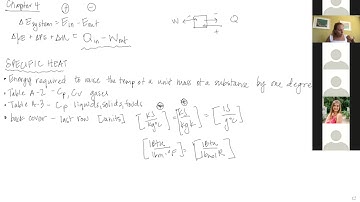 Chapter 4
⊕ ⊖
ΔEsystem = Ein - Eout
W Q
ΔKE + ΔPE + ΔU = Qin - Wout
SPECIFIC HEAT
• Energy required to raise the temp of a unit mass of a substance by one degree
• Table A-2 - Cp, Cv gases
• Table A-3 - Cp liquids, solids, foods
• back cover - last row [units] [kJ/kg°C] = [kJ/kg K] = [J/g°C]
[1Btu/lbm·°F] = [1Btu/lbm R]